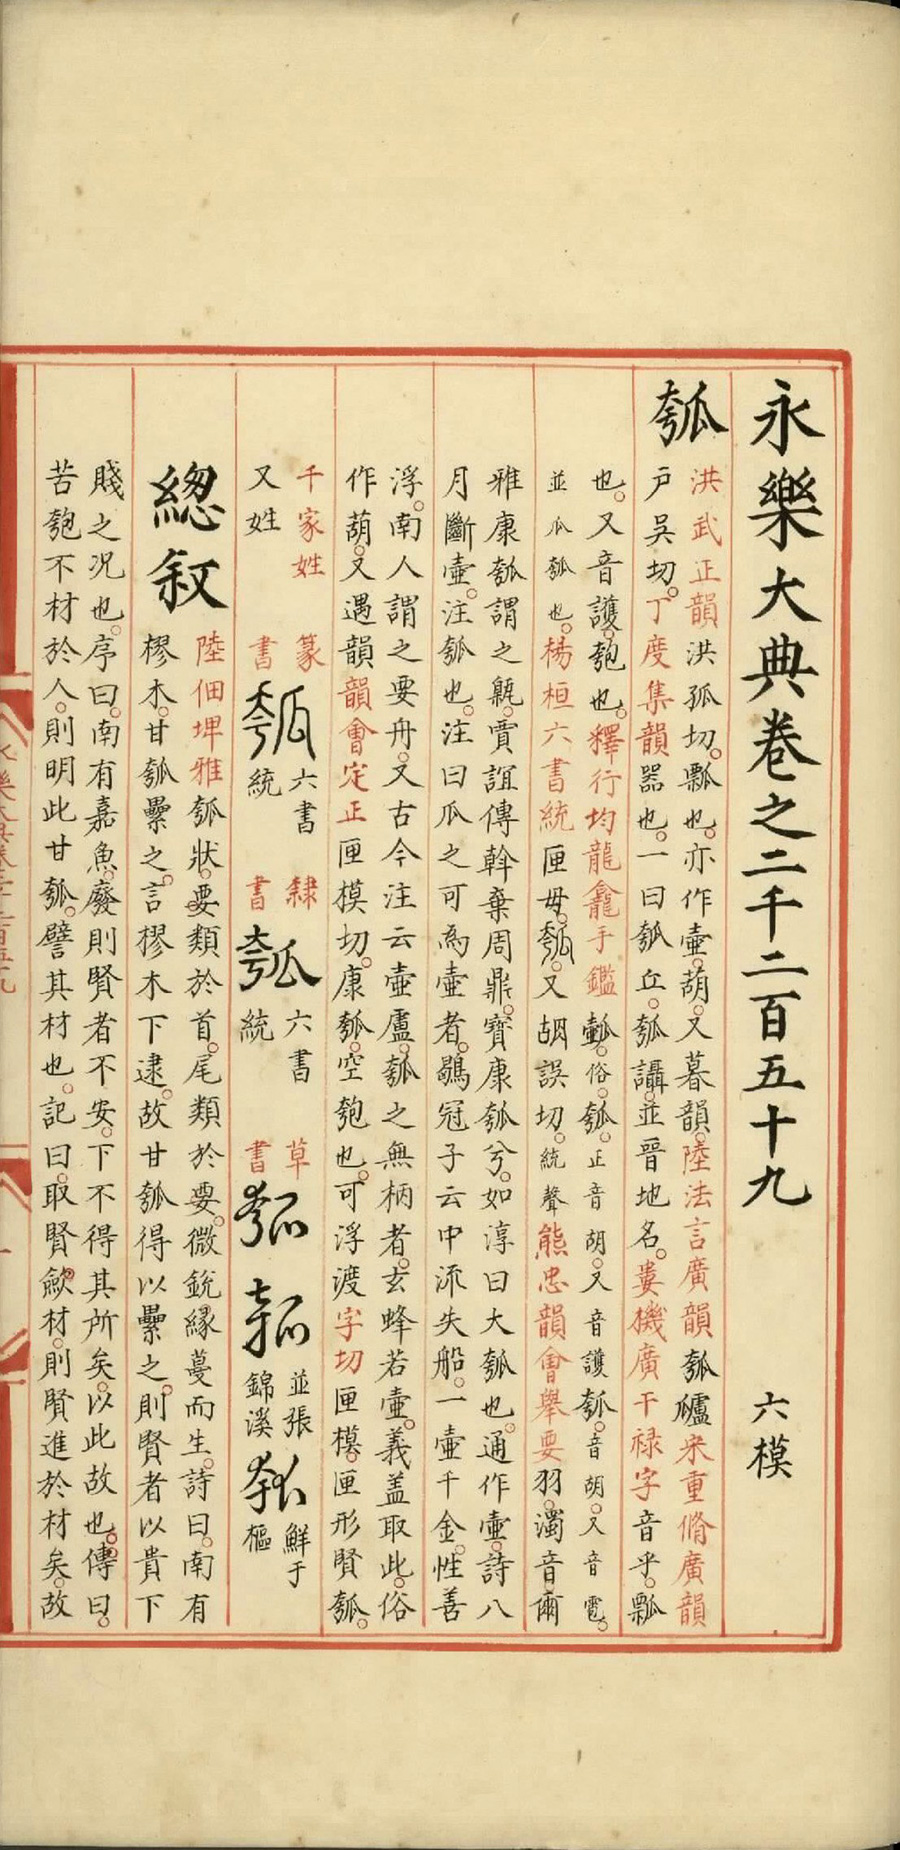 永樂大典卷之二千二百五十九 六模
瓠
洪武正韻洪孤切。瓢也。亦作壺。葫。又暮韻。陸法言廣韻瓠𤬛宋重脩廣韻
戶吳切。丁度集韻器也。一曰瓠丘。瓠讘。並晉地名。婁機廣干禄字音乎。瓢
也。又音護。匏也。釋行均龍龕手鑑𤬛。俗。瓠。正音胡。又音護瓠。音胡。又音雹。
並瓜瓠也。楊桓六書統匣母。瓠。又胡誤切。統聲熊忠韻會舉要羽。濁音爾
雅康瓠謂之甈。賈誼傳斡棄周鼎。寶康瓠兮。如淳曰大瓠也。通作壺。詩八
月斷壺。注瓠也。注曰瓜之可為壺者。鶡冠子云中流失船。一壺千金。性善
浮。南人謂之要舟。又古今注云壺盧。瓠之無柄者。玄蜂若壺。義盖取此。俗
作葫。又遇韻韻會定正匣模切。康瓠。空匏也。可浮渡字切匣模。匣形賢瓠。
千家姓
又姓
篆書
瓠
六書統
隸書
瓠
六書統
草書
瓠
瓠
並張錦溪
瓠
鮮于樞
緫叙
陸佃埤雅瓠狀。要類於首。尾類於要。微銳緣蔓而生。詩曰。南有
樛木。甘瓠纍之。言樛木下逮。故甘瓠得以纍之。則賢者以貴下
賤之况也。序曰。南有嘉魚。廢則賢者不安。下不得其所矣。以此故也。傳曰。
苦匏不材於人。則明此甘瓠。譬其材也。記曰。取賢歛材。則賢進於材矣。故
永樂大典卷二千二百五十九
一